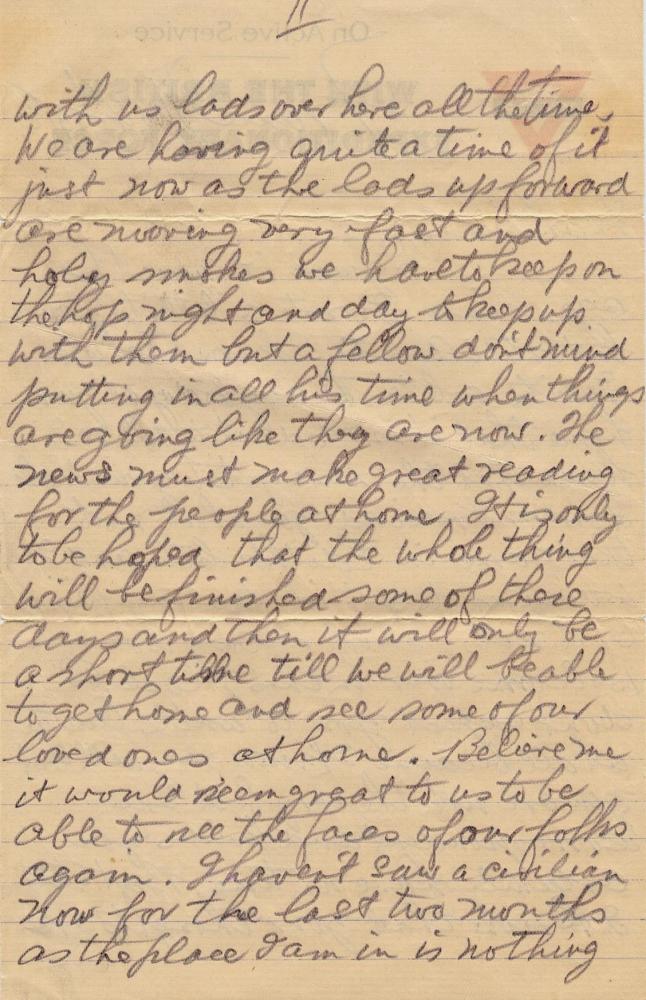 11
On Active Service
WITH THE BRITISH
with us lads over here all the time.
We are having quite a time of it
just now as the lads up forward
are mooving very fast and
holey smokes we have to keep on
the hop night and day to keep up
with them but a fellow don't mind
putting in all his time when things
are going like they are now. The
news must make great reading
for the people at home. It is only
to be hoped that the whole thing
will be finished some of these
days and then it will only be
a short time till we will be able
to get home and see some of our
loved ones at home. Believe me
it would seem great to us to be
able to see the faces of our folks
again. I haven't saw a civilian
now for the last two months
as the place I am in is nothing